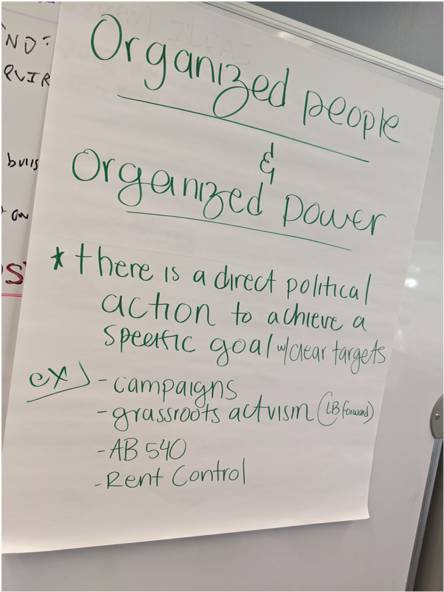 Organized people
&
Organized power
* there is a direct political
action to achieve a
specific goal w/clear targets
ex) - campaigns
- grassroots activism (LB forward)
- AB 540
- Rent Control
NO?
QUIR